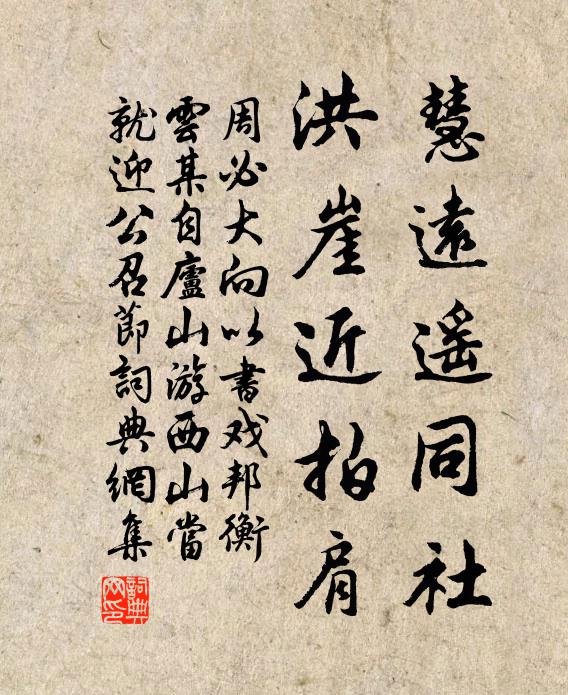 慧遠遥同社
洪崖近拍肩
周必大向以書戏邦衡
雲某自廬山游西山當
就迎公召節詞典網集
詞典
网印